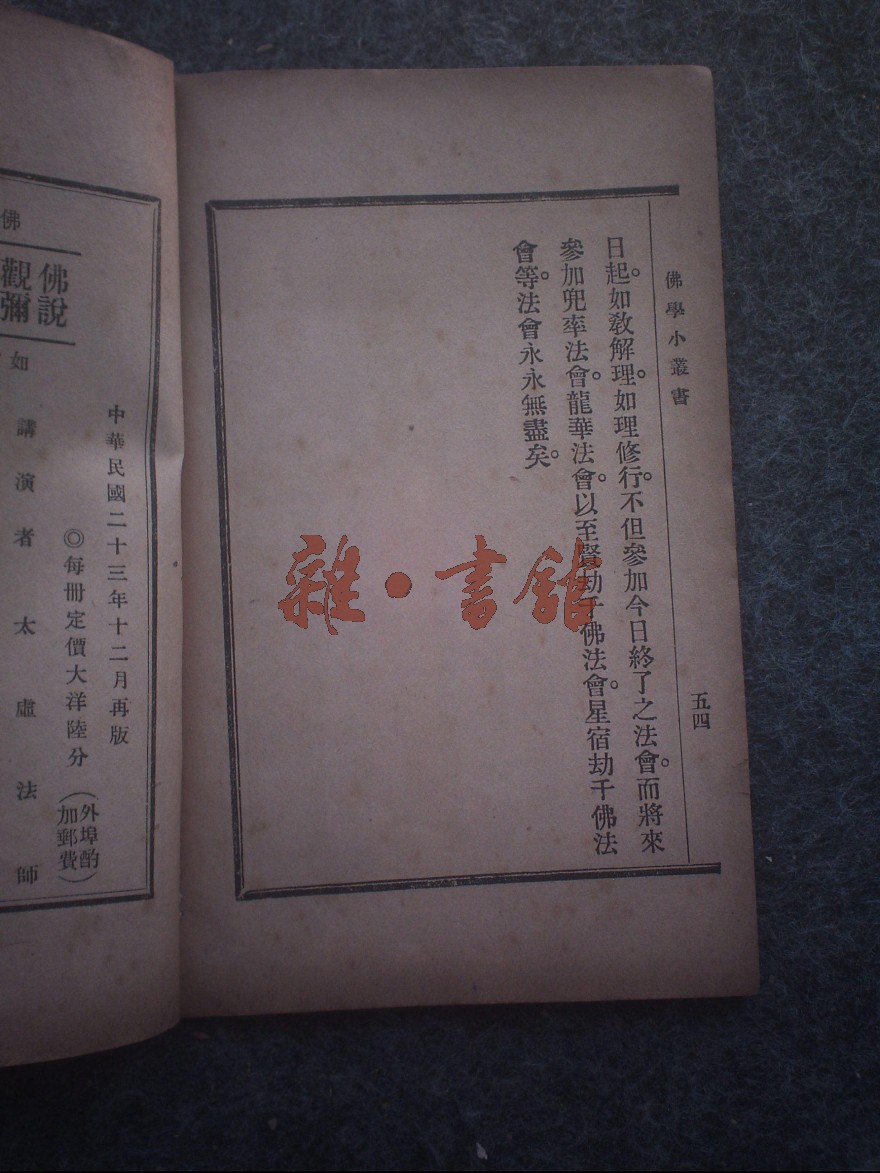 佛學小叢書
五四
日起。如敎解理。如理修行。不但參加今日終了之法會。而將來
參加兜率法會。龍華法會。以至賢劫千佛法會。星宿劫千佛法
會等。法會永永無盡矣。
雜·書館
中華民國二十三年十二月再版
◎每冊定價大洋陸分
(外埠酌
加郵費)
佛說
觀彌
佛
如
講演者太虛法師